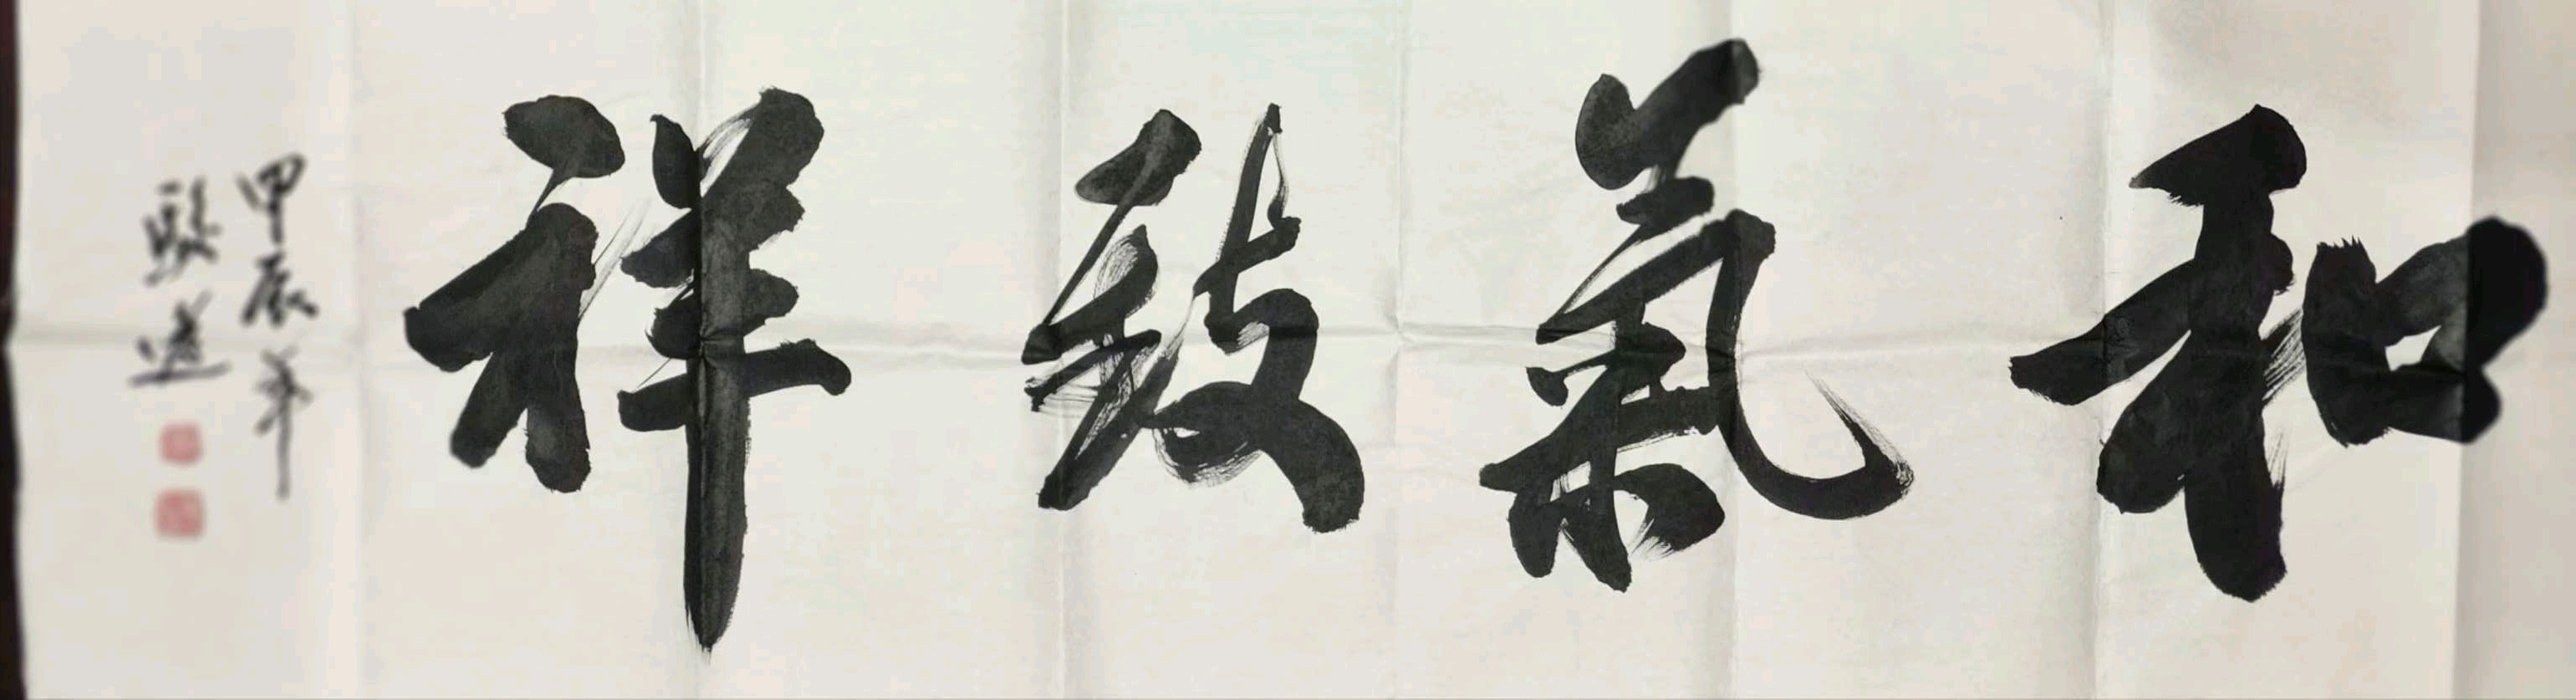 和氣致祥
甲辰年